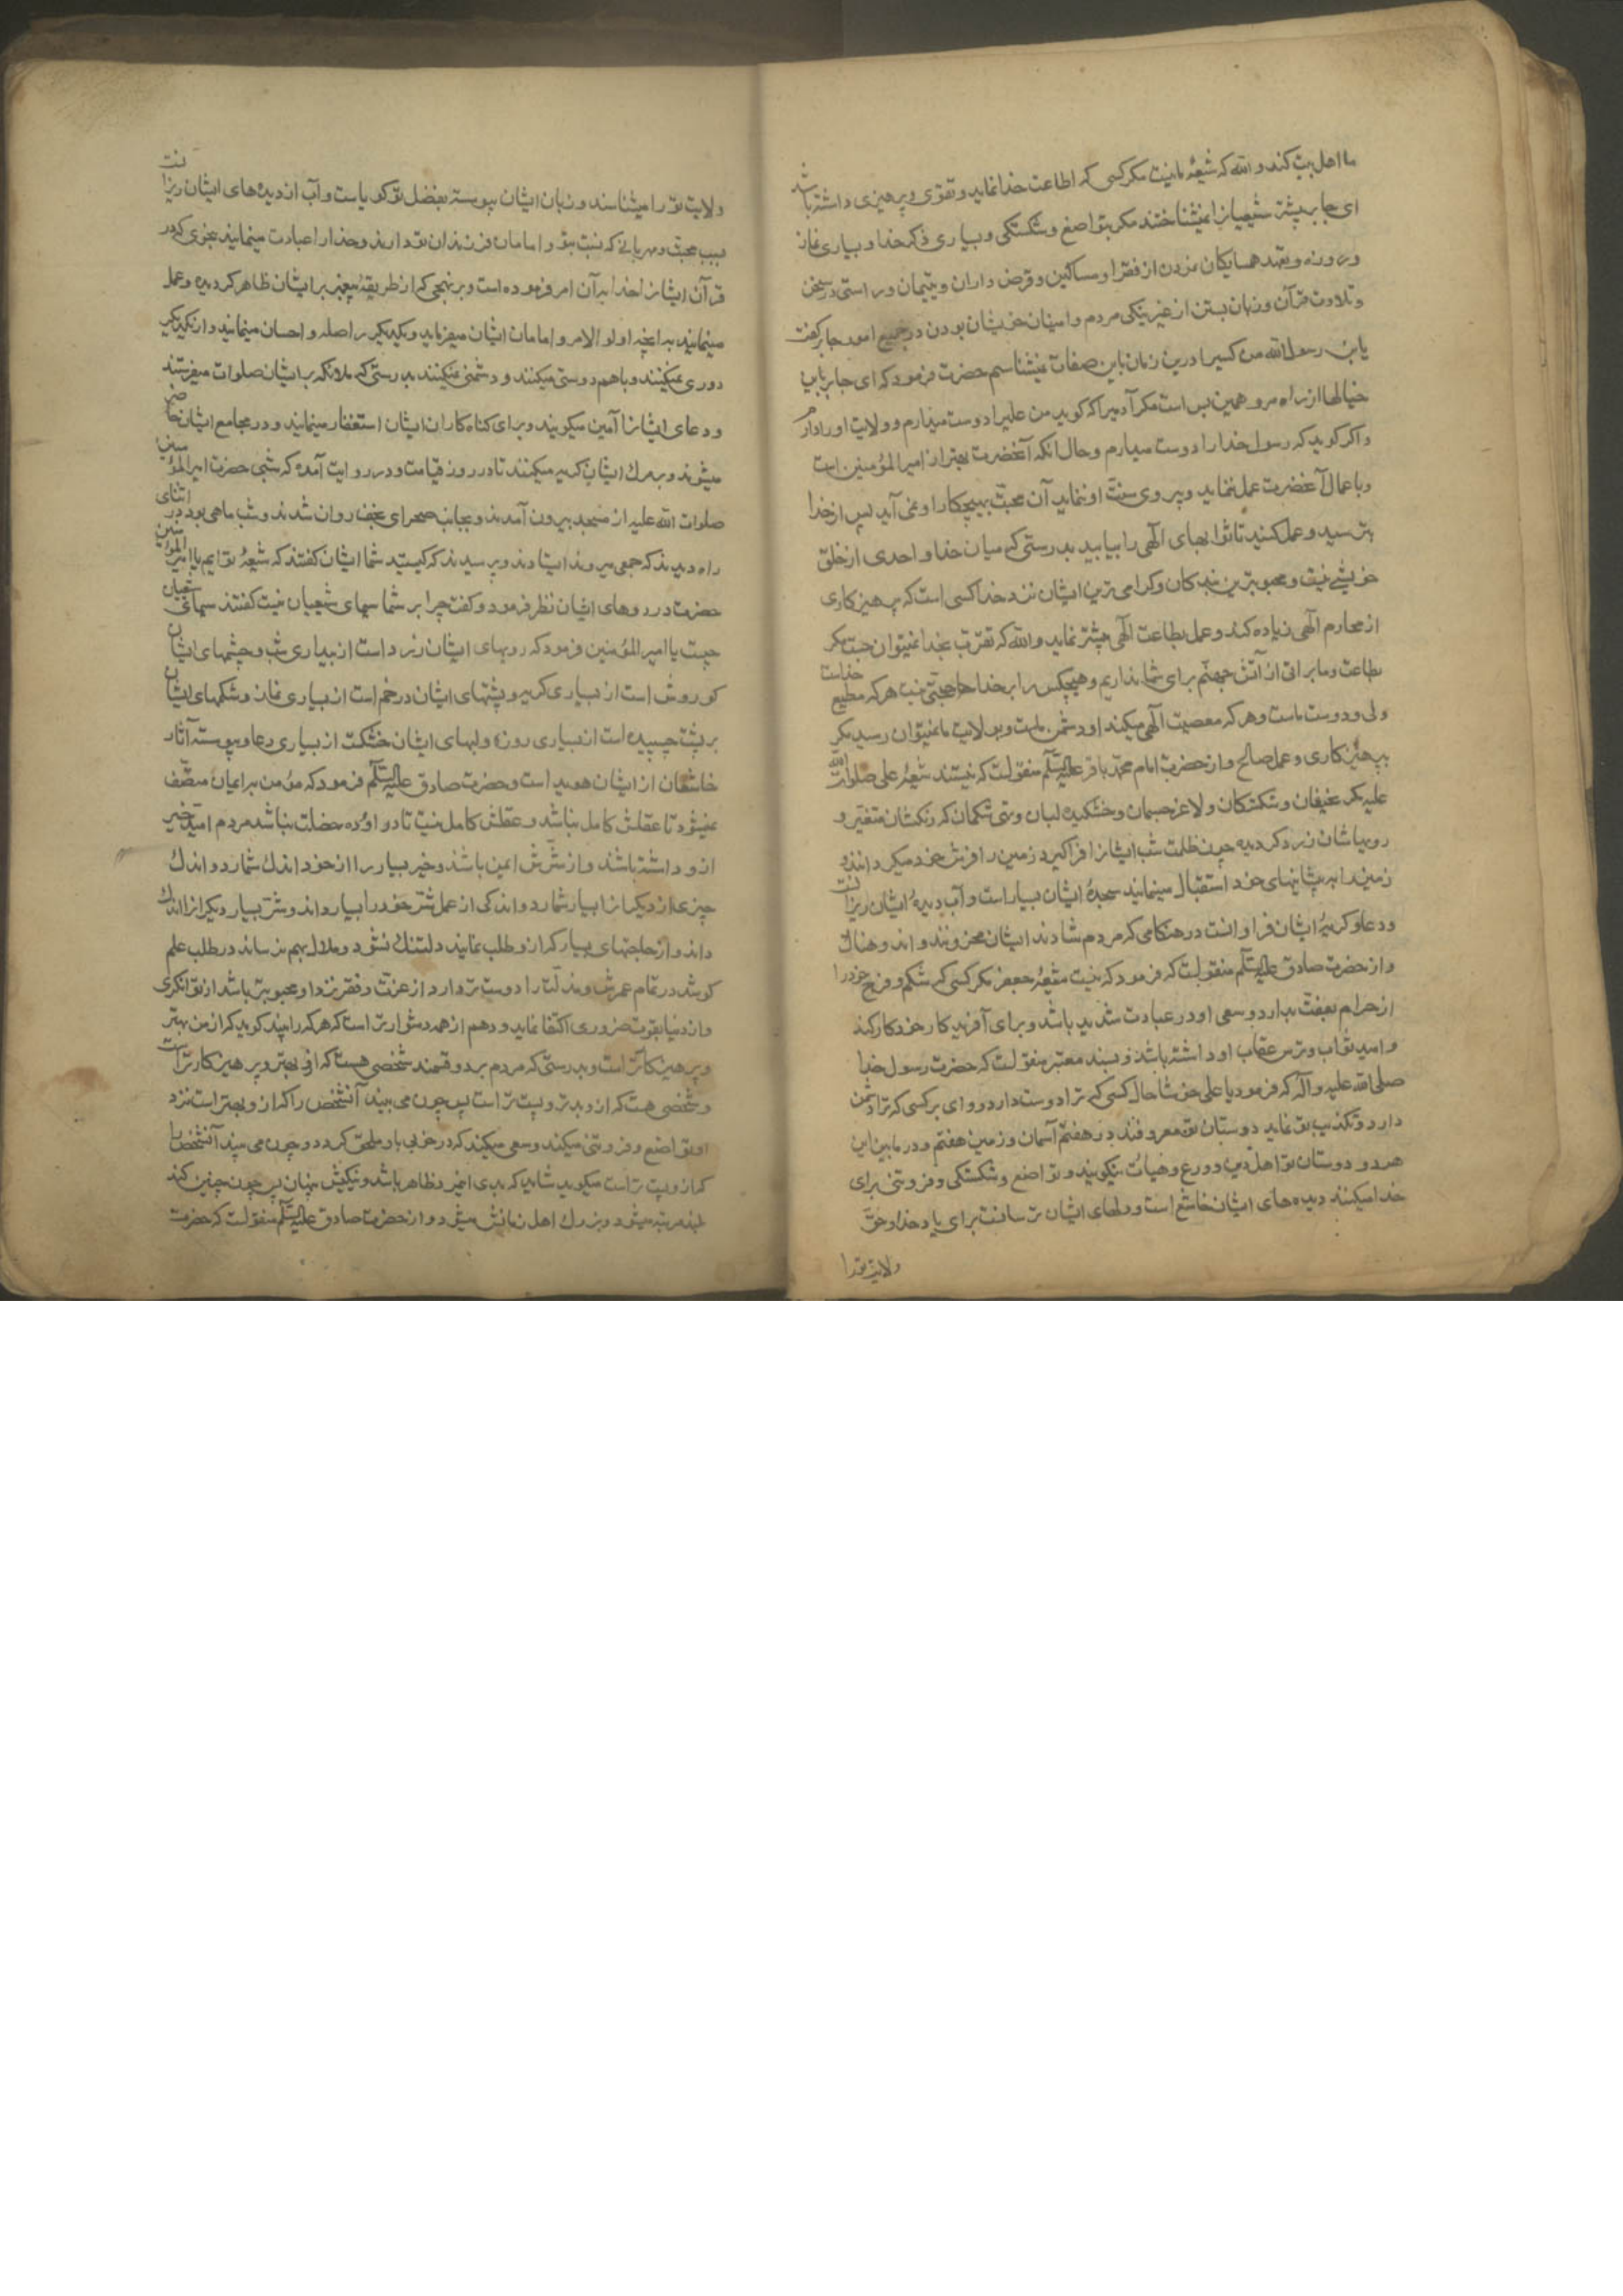 ما اهل بیت کند و الله که شیعهٔ ما نیست مکر کسی که اطاعت خدا نماید و تقوی و پرهیزی داشته باشد
ای جابر پیشتر شیعیانرا نمیشناختند مکر بتواضع و شکستکی و بسیاری ذکر خدا و بسیاری نماز
و روزه و تعهد همسایکان نزدن از فقرا و مساکین و قرض داران و یتیمان و راستی در سخن
و تلاوت قرآن و زبان بستن از غیر نیکی مردم و امینان خویشان بودن در جمیع امور جابر کفت
یابن رسول الله من کسیرا درین زمان باین صفات نمیشناسم حضرت فرمود که ای جابر باین
خیالها از راه مرو همین بس است مکر آدمیرا که کوید من علیرا دوست میدارم و ولایت او را دارم
و اکر کوید که رسول خدا را دوست میدارم و حال انکه آنحضرت بهتر از امیرالمؤمنین است
و باعمال آنحضرت عمل ننماید و پیروی سنت او ننماید آن محبت بهیچکار او نمی آید پس از خدا
بترسید و عمل کنید تا ثوابهای الهی را بیابید بدرستی که میان خدا و احدی از خلق
خویشی نیست و محبوبترین بندکان و کرامی ترین ایشان نزد خدا کسی است که پرهیزکاری
از محارم الهی زیاده کند و عمل بطاعت الهی بیشتر نماید و الله که تقرب بخدا نمیتوان جست مکر
بطاعت و ما براتی از آتش جهنم برای شما نداریم و هیچکس را بر خدا حجتی نیست هر که مطیع خداست
ولی و دوست ماست و هر که معصیت الهی میکند او دشمن ماست و بولایت ما نمیتوان رسید مکر
بپرهیزکاری و عمل صالح و از حضرت امام محمد باقر علیه السلم منقولست که نیستند شیعهٔ علی صلوات الله
علیه مکر عفیفان و شکستکان و لاغر جسمان و خشکیده لبان و تهی شکمان که رنکشان متغیر و
رویهاشان زرد کردیده چون ظلمت شب ایشانرا فراکیرد زمین را فرش خود میکردانند و
زمین را به پیشانیهای خود استقبال مینمایند سجدهٔ ایشان بسیار است و آب دیدهٔ ایشان ریزانست
و دعا و کریهٔ ایشان فراوانست در هنکامی که مردم شادند ایشان محزونند و اندوهناک
و از حضرت صادق علیه السلم منقولست که فرمود که نیست شیعهٔ جعفر مکر کسی که شکم و فرج خود را
از حرام بعفت بدارد و سعی او در عبادت شدید باشد و برای آفریدکار خود کار کند
و امید ثواب و ترس عقاب او داشته باشد و بسند معتبر منقولست که حضرت رسول خدا
صلی الله علیه و آله که فرمود یا علی خوشا حال کسی که ترا دوست دارد و وای بر کسی که ترا دشمن
دارد و تکذیب تو نماید دوستان تو معروفند در هفتم آسمان و زمین هفتم و در مابین این
هر دو دوستان تو اهل دین و ورع و هیأت نیکویند و تواضع و شکستکی و فروتنی برای
خدا میکنند دیده های ایشان خاشع است و دلهای ایشان ترسانست برای یاد خدا و حق
ولایت ترا
ولایت تو را میشناسند و زبان ایشان پیوسته بفضل تو کویاست و آب از دیده های ایشان ریزانست
بسبب محبت و مهربانی که نسبت بتو و امامان فرزندان تو دارند و خدا را عبادت مینمایند بنحوی که در
قرآن ایشانرا خدا بدآن امر فرموده است و بر نهجی که از طریقهٔ پیغمبر بر ایشان ظاهر کردیده و عمل
مینمایند به انچه اولو الامر و امامان ایشان میفرماید و یکدیکر را صله و احسان مینمایند و از یکدیکر
دوری نمیکنند و باهم دوستی میکنند و دشمنی نمیکنند بدرستی که ملائکه بر ایشان صلوات میفرستند
و دعای ایشانرا آمین میکویند و برای کناه کاران ایشان استغفار مینمایند و در مجامع ایشان حاضر
میشوند و بمرک ایشان کریه میکنند تا در روز قیامت و در روایت آمده که شبی حضرت امیرالمؤمنین
صلوات الله علیه از مسجد بیرون آمدند و بجانب صحرای نجف روان شدند و شب ماهی بود در اثنای
راه دیدند که جمعی میروند ایستادند و پرسیدند که کیستید شما ایشان کفتند که شیعهٔ توایم یا امیرالمؤمنین
حضرت در روهای ایشان نظر فرمود و کفت چرا بر شما سیمای شیعیان نیست کفتند سیمای شیعیان
چیست یا امیرالمؤمنین فرمود که رویهای ایشان زرد است از بیداری شب و چشمهای ایشان
کوروش است از بسیاری کریه و پشتهای ایشان در خم است از بسیاری نماز و شکمهای ایشان
بر پشت چسبیده است از بسیاری روزه و لبهای ایشان خشکست از بسیاری دعا و پیوسته آثار
خاشعان از ایشان هویداست و حضرت صادق علیه السلم فرمود که مؤمن بر ایمان متصف
نمیشود تا عقلش کامل نباشد و عقلش کامل نیست تا در او ده خصلت نباشد مردم امید خیر
ازو داشته باشند و از شرش ایمن باشند و خیر بسیار را از خود اندک شمارد و اندک
چیزی از دیکرانرا بسیار شمارد و اندکی از عمل شر خود را بسیار داند و شر بسیار دیکرانرا اندک
داند و از حاجتهای بسیار که ازو طلب نمایند دلتنک نشود و ملال بهم نرساند در طلب علم
کوشد در تمام عمرش و مذلت را دوست تر دارد از عزت و فقر نزد او محبوبتر باشد از توانکری
و از دنیا بقوت ضروری اکتفا نماید و دهم از همه دشوارتر است که هر که را بیند کوید که از من بهتر
و پرهیزکارتر است و بدرستی که مردم بر دو قسمند شخصی هست که ازو بهتر و پرهیزکارتر است
و شخصی هست که ازو بدتر و پست تر است پس چون می بیند آنشخص را که ازو بهتر است نزد
او تواضع و فروتنی میکند و سعی میکند که در خوبی باو ملحق کردد و چون می بیند آنشخص را
که ازو پست تر است میکوید شاید که بدی این مرد ظاهر باشد و نیکیش پنهان پس چون چنین کند
بلند مرتبه میشود و بزرک اهل زمانش میشود و از حضرت صادق علیه السلم منقولست که حضرت